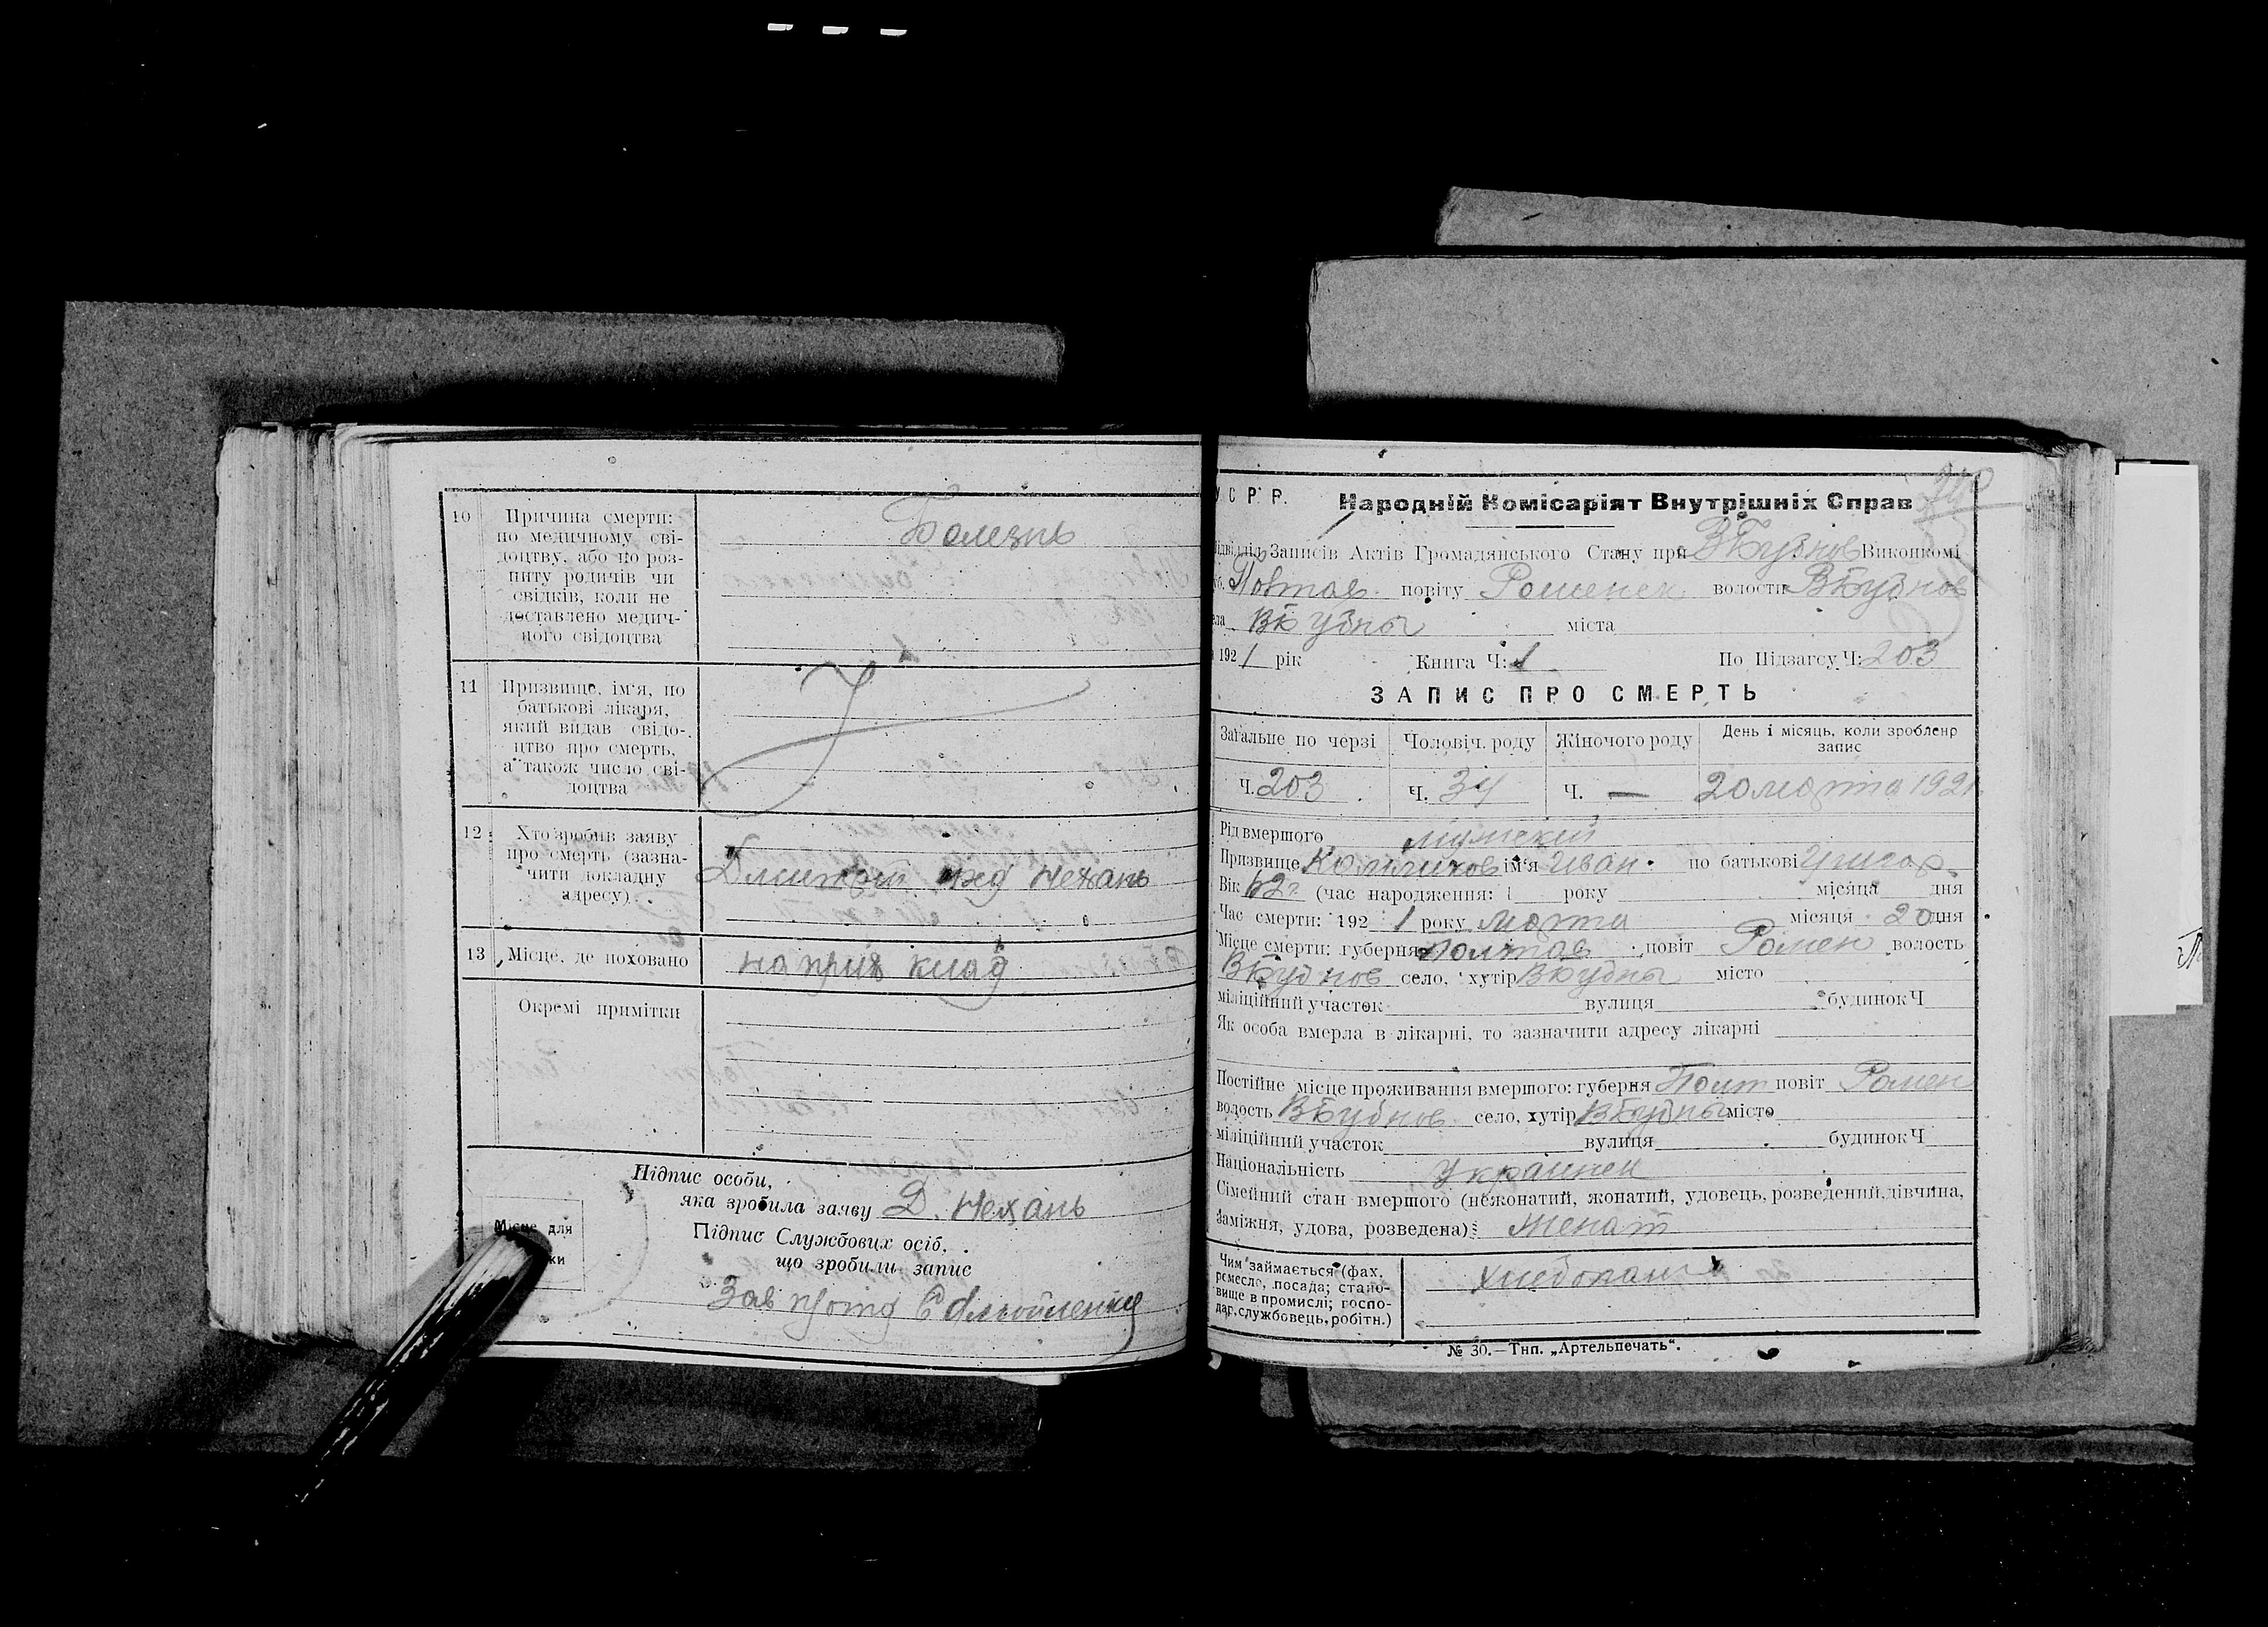 10 Причина смерти: Болезнь
по медичному сві-
доцтву, або по роз-
питу родичів чи
свідків, коли не
доставлено медич-
ного свідоцтва
11 Призвище, ім'я, по
батькові лікаря,
який видав свідо-
цтво про смерть,
а також число сві-
доцтва
12 Хто зробив заяву
про смерть (зазна-
чити докладну Нехань
адресу)
13 Місце, де поховано на прих клад
Окремі примітки
Підпис особи,
яка зробила заяву Д. Нехань
Підпис Службових осіб,
що зробили запис
Зав
Місце для
ки
У С Р Р. Народній Комісаріят Внутрішніх Справ
Підвідділ Записів Актів Громадянського Стану при ВБубнов Виконкомі
Полтав. повіту Роменск волости ВБубнов
села ВБубны міста
1921 рік Книга Ч: 1 По Підзагсу Ч: 203
ЗАПИС ПРО СМЕРТЬ
Загальне по черзі Чоловіч. роду Жіночого роду День і місяць, коли зроблено
запис
Ч. 203 Ч. 34 Ч. — 20 марта 1921
Рід вмершого мужский
Призвище ім'я Иван по батькові
Вік 52 г (час народження: 1 року місяця дня
Час смерти: 1921 року марта місяця 20 дня
Місце смерти: губерня Полтав повіт Ромен волость
ВБубнов село, хутір ВБубны місто
міліційний участок вулиця будинок Ч
Як особа вмерла в лікарні, то зазначити адресу лікарні
Постійне місце проживання вмершого: губерня Полт повіт Ромен
волость ВБубнов село, хутір ВБубны місто
міліційний участок вулиця будинок Ч
Національність Украинец
Сімейний стан вмершого (нежонатий, жонатий, удовець, розведений, дівчина,
заміжня, удова, розведена) Женат
Чим займається (фах, хлебопаш
ремесло, посада; стано-
вище в промислі; госпо-
дар, службовець, робітн.)
№ 30.—Тип. „Артельпечать“.